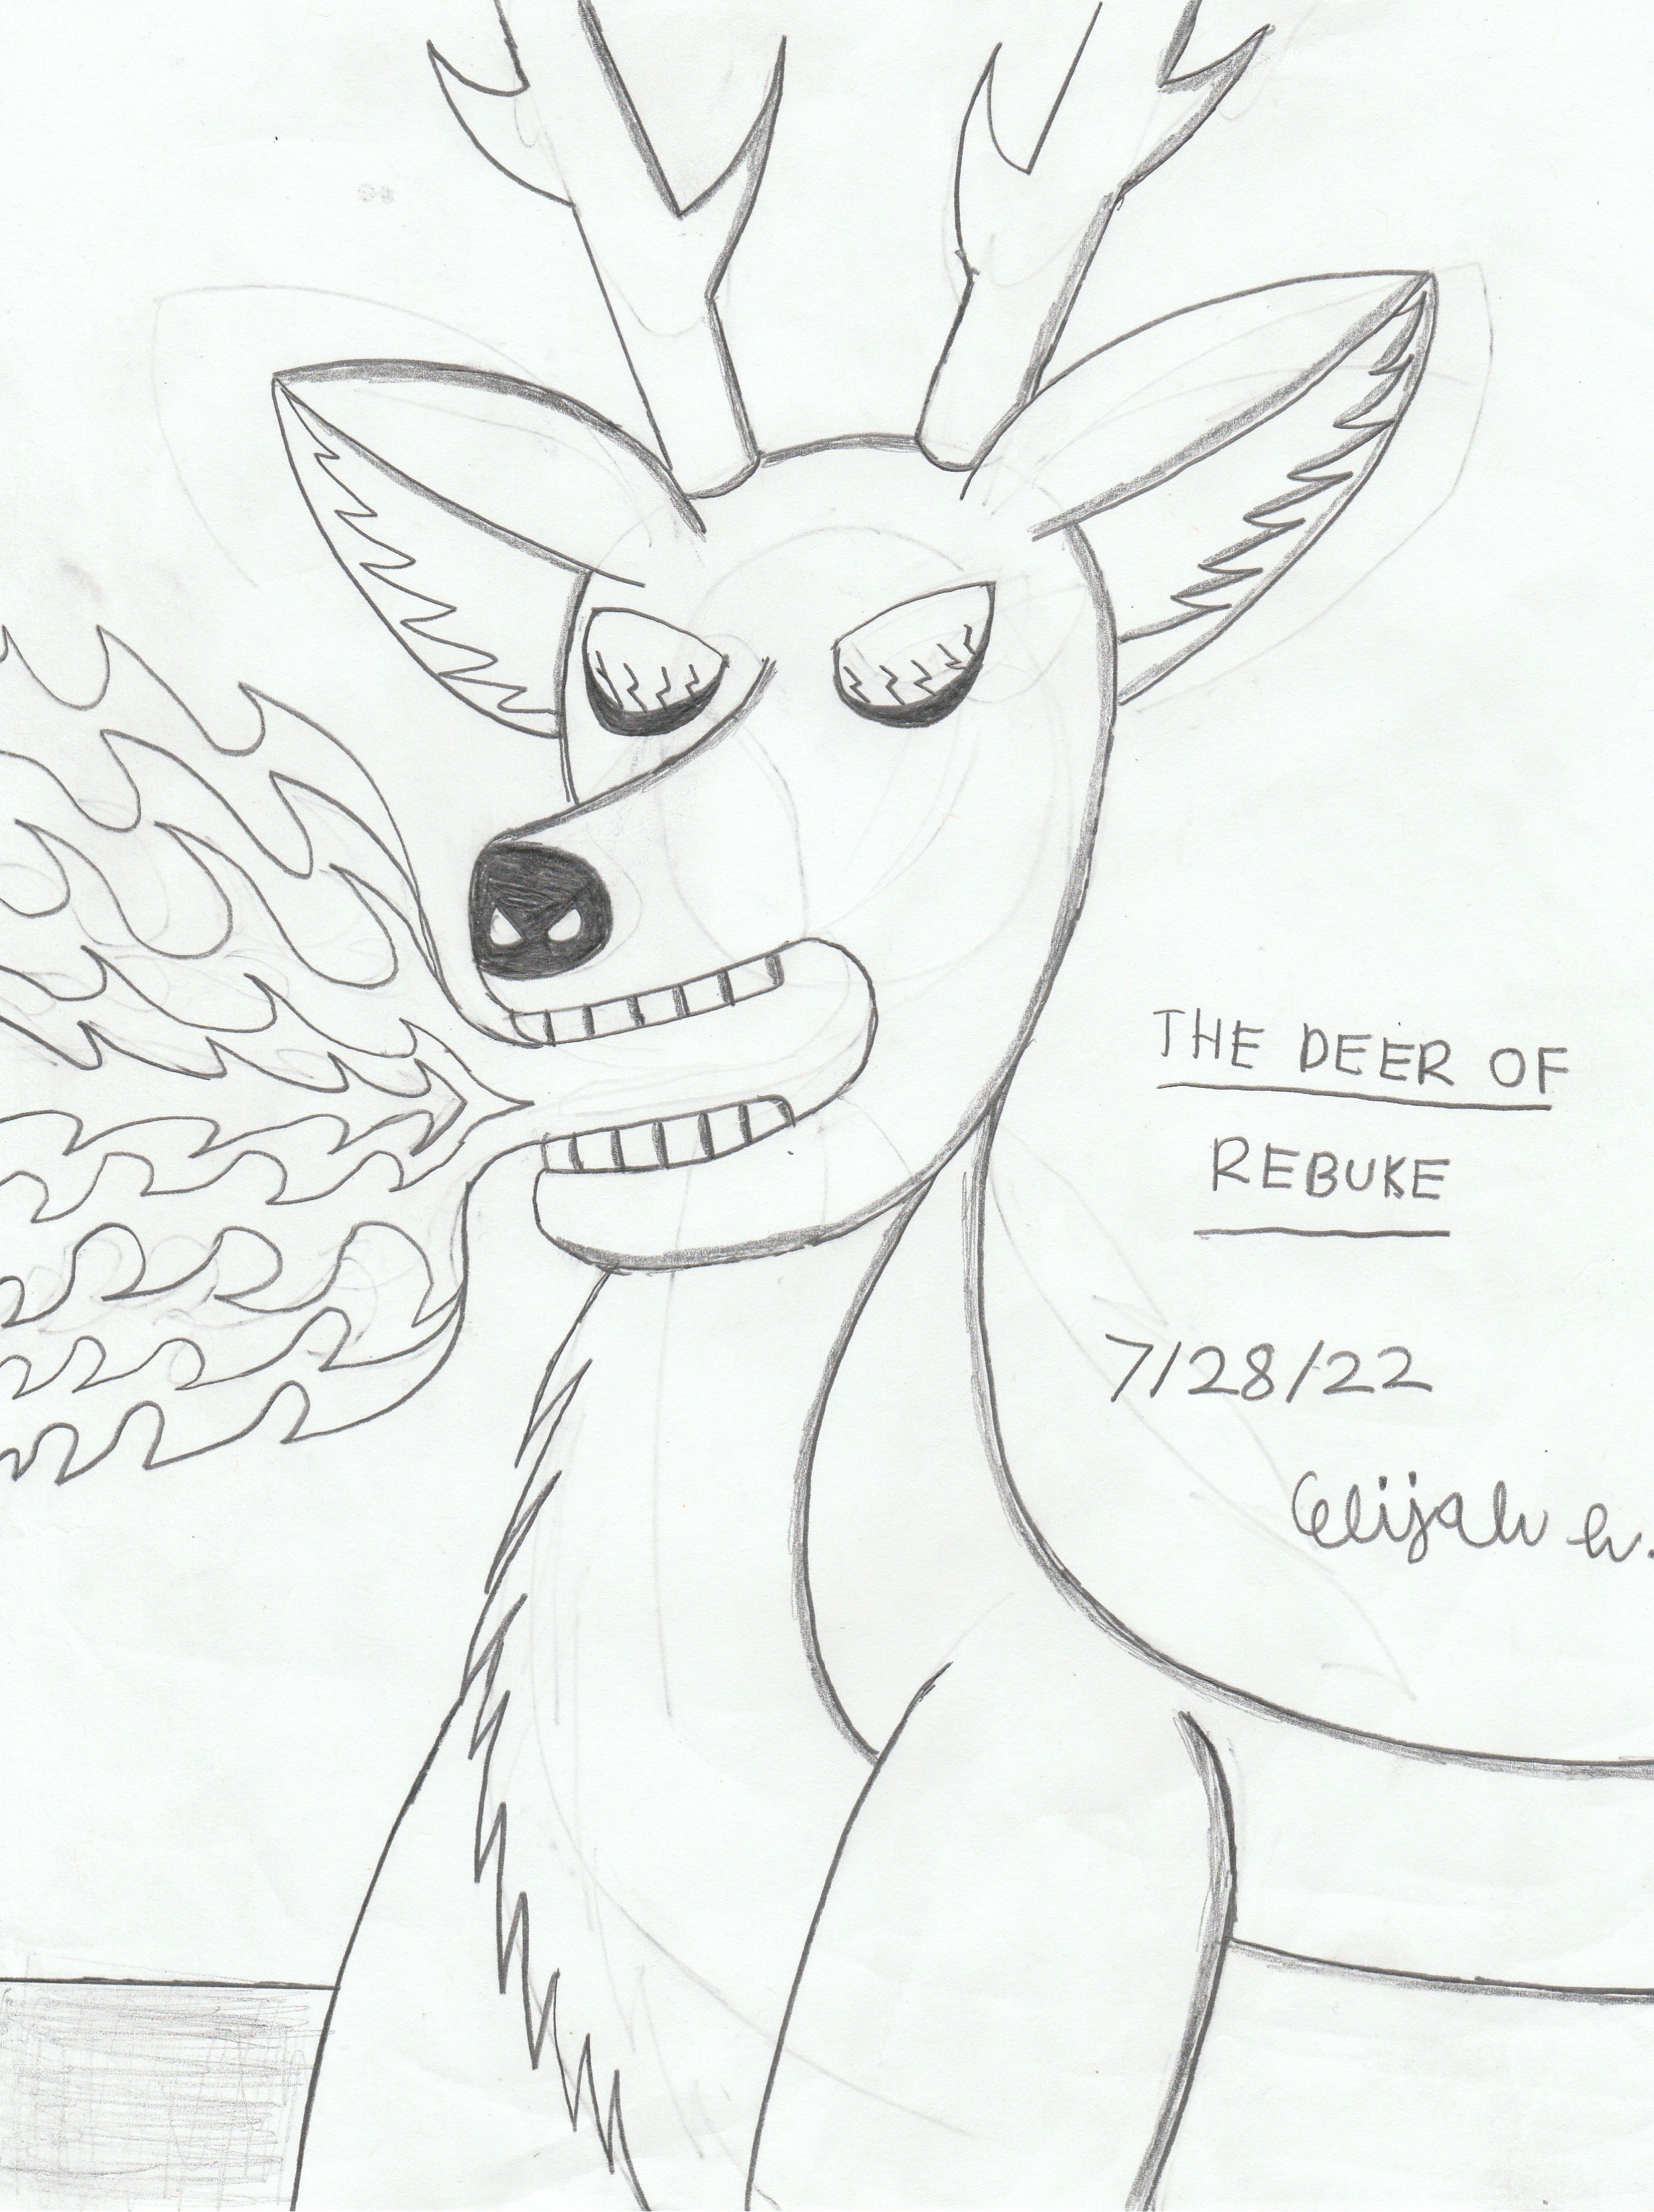 THE DEER OF
REBUKE
7/28/22
Elijah h.